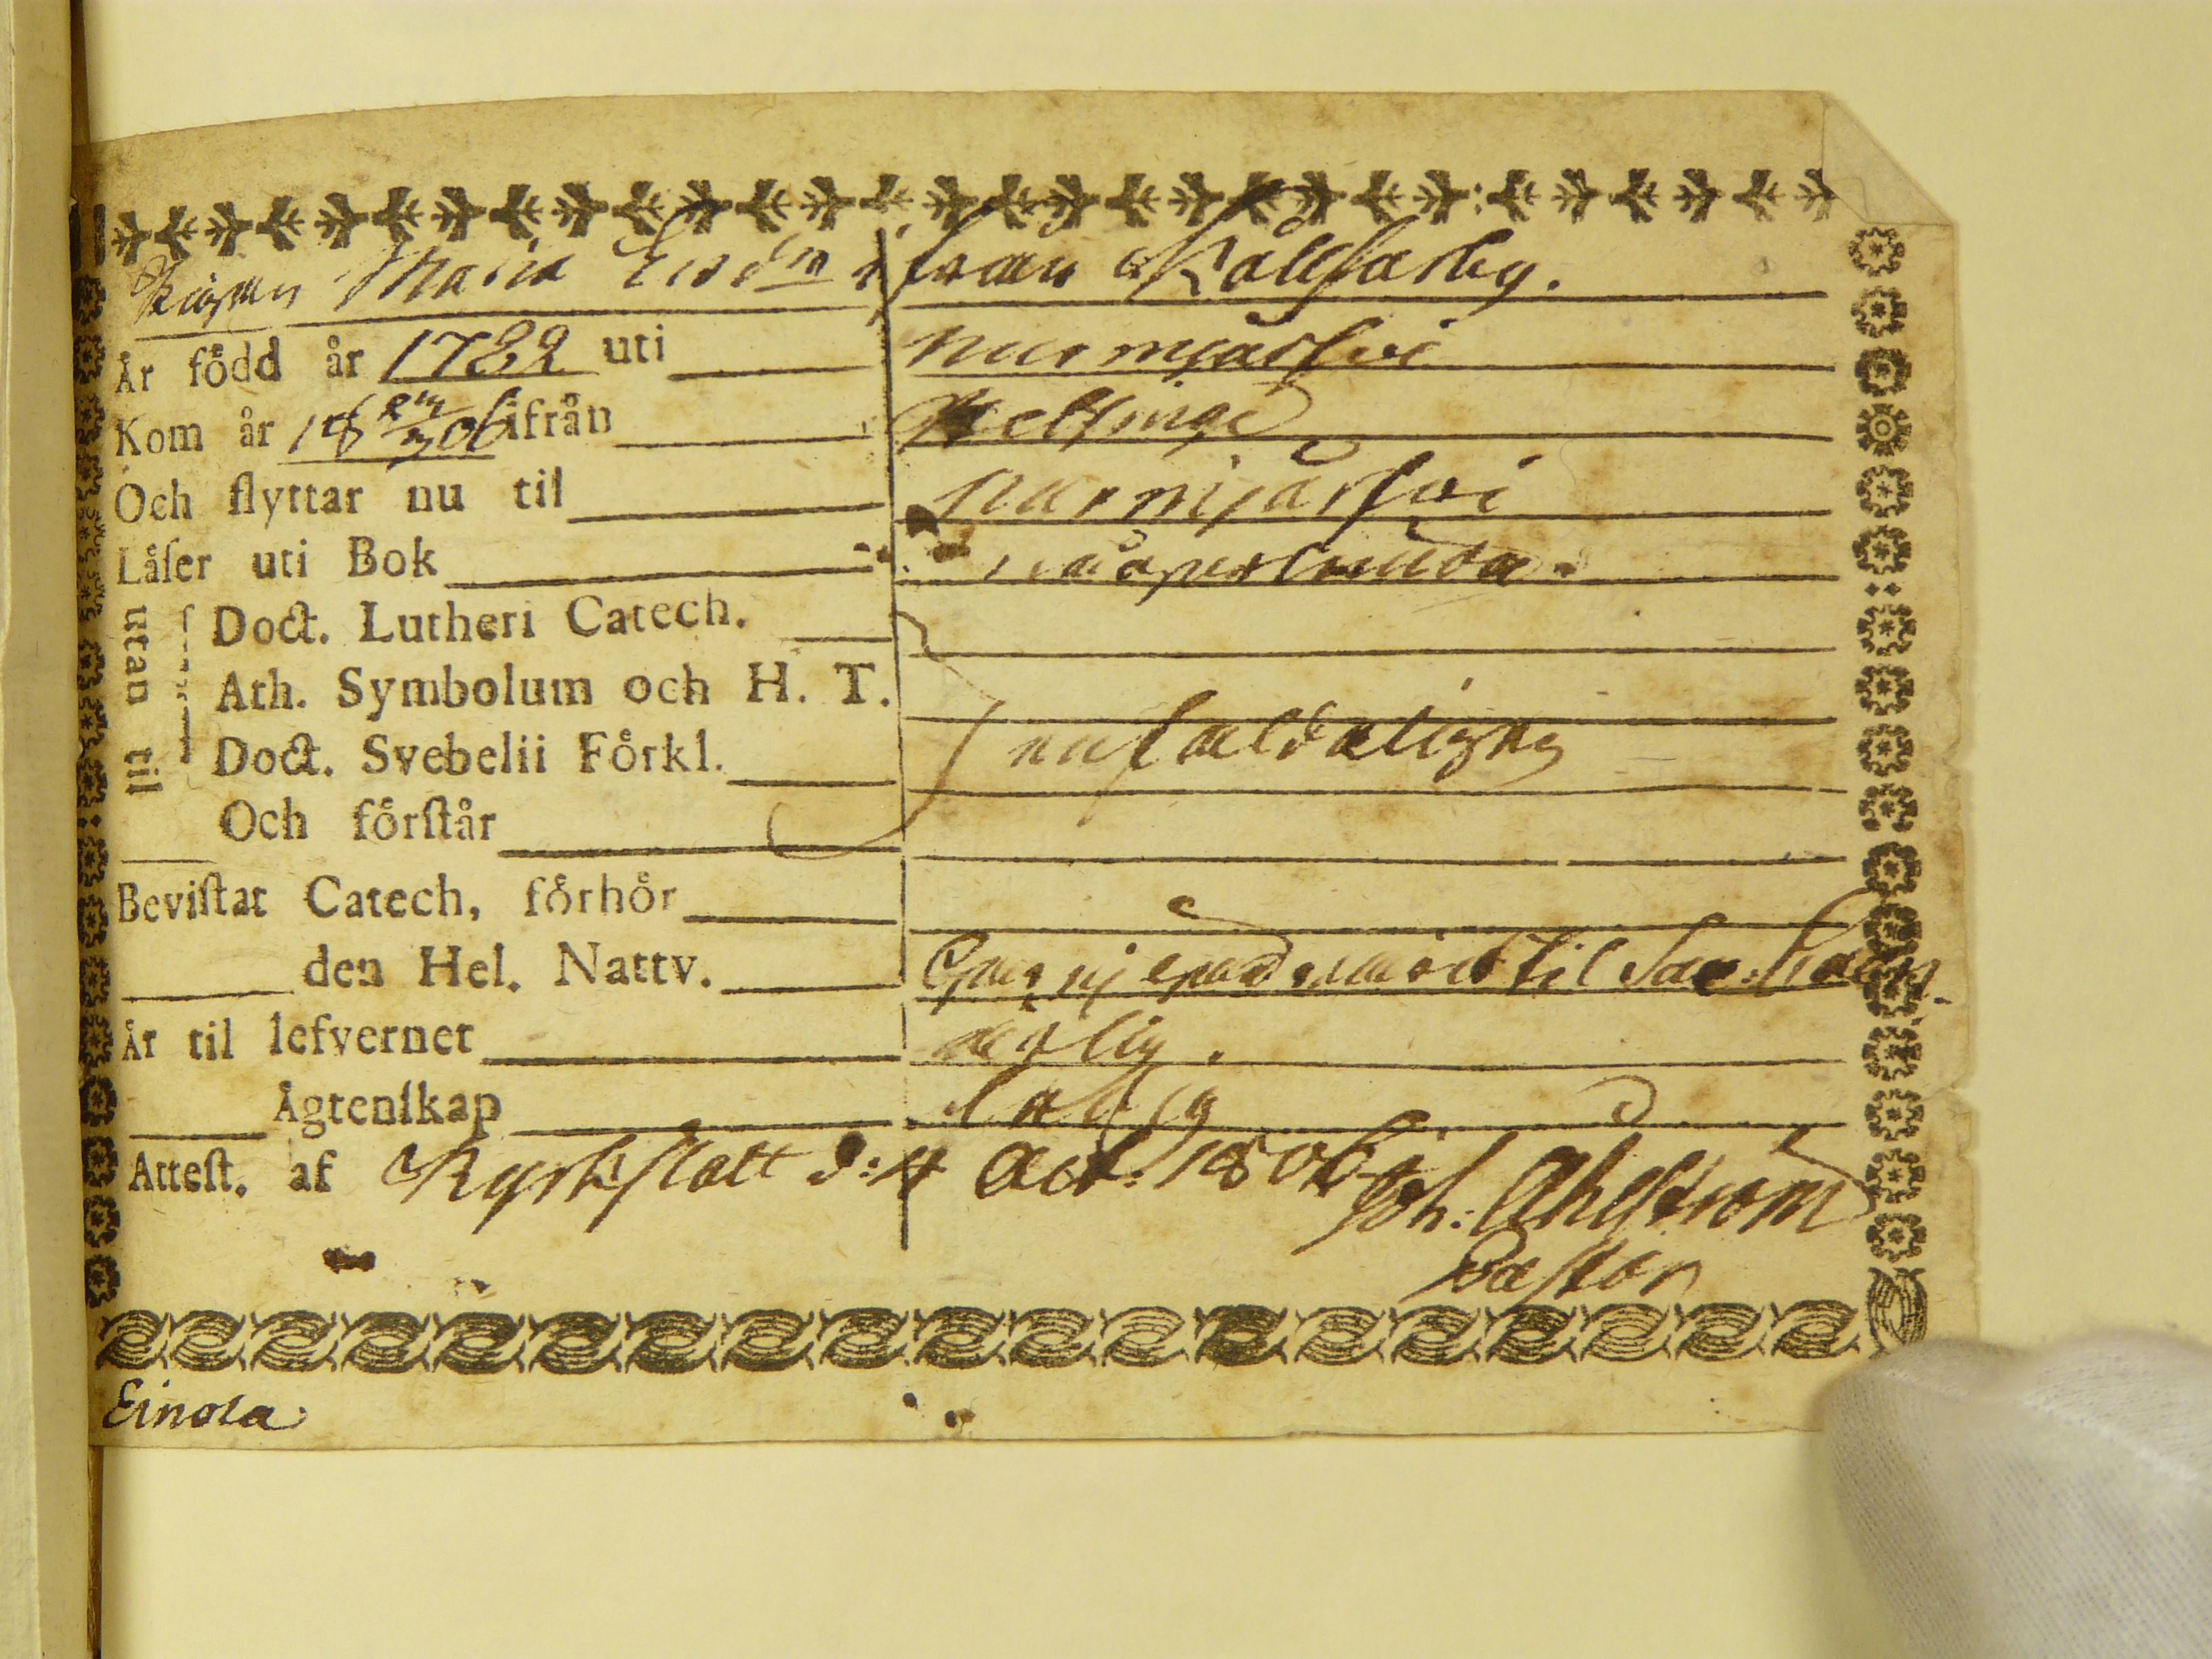 Pigan Maria Ersdr ifrån Källfarby.
År född år 1782 uti Nurmjärfvi
Kom år 18 24/3 06 ifrån Helsinge
Och flyttar nu til Nurmijärfvi
Låser uti Bok
utan til
Doct. Lutheri Catech.
Ath. Symbolum och H. T.
Doct. Svebelii Förkl. enfaldeligen
Och förſtår
Beviſtat Catech, förhör
den Hel. Nattv. til
År til lefvernet ärlig.
Ägtenſkap ledig
Atteſt. af Kyrkſlätt d: 4 Oct: 1806. Joh: Ahlström
Paſtor
Einola